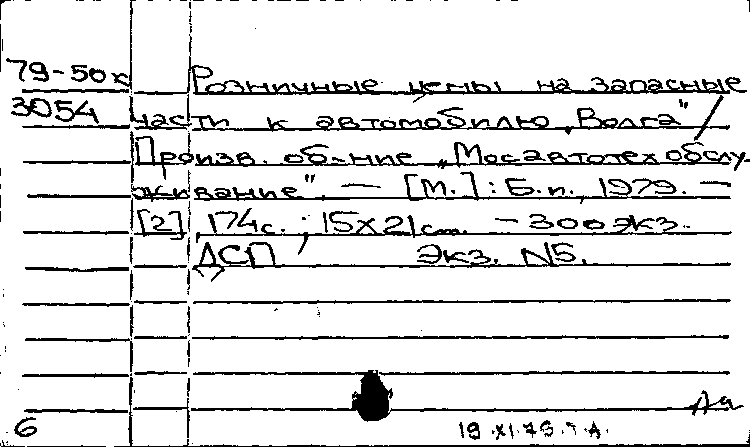 79-50к Розничные цены на запасные
3054 части к автомобилю „Волга" /
Произв. об-ние „Мосавтотехобслу-
живание". — [М.] : Б. и., 1979. —
[2], 174с. ; 15X21см. — 300экз.
ДСП Экз. N5.
6